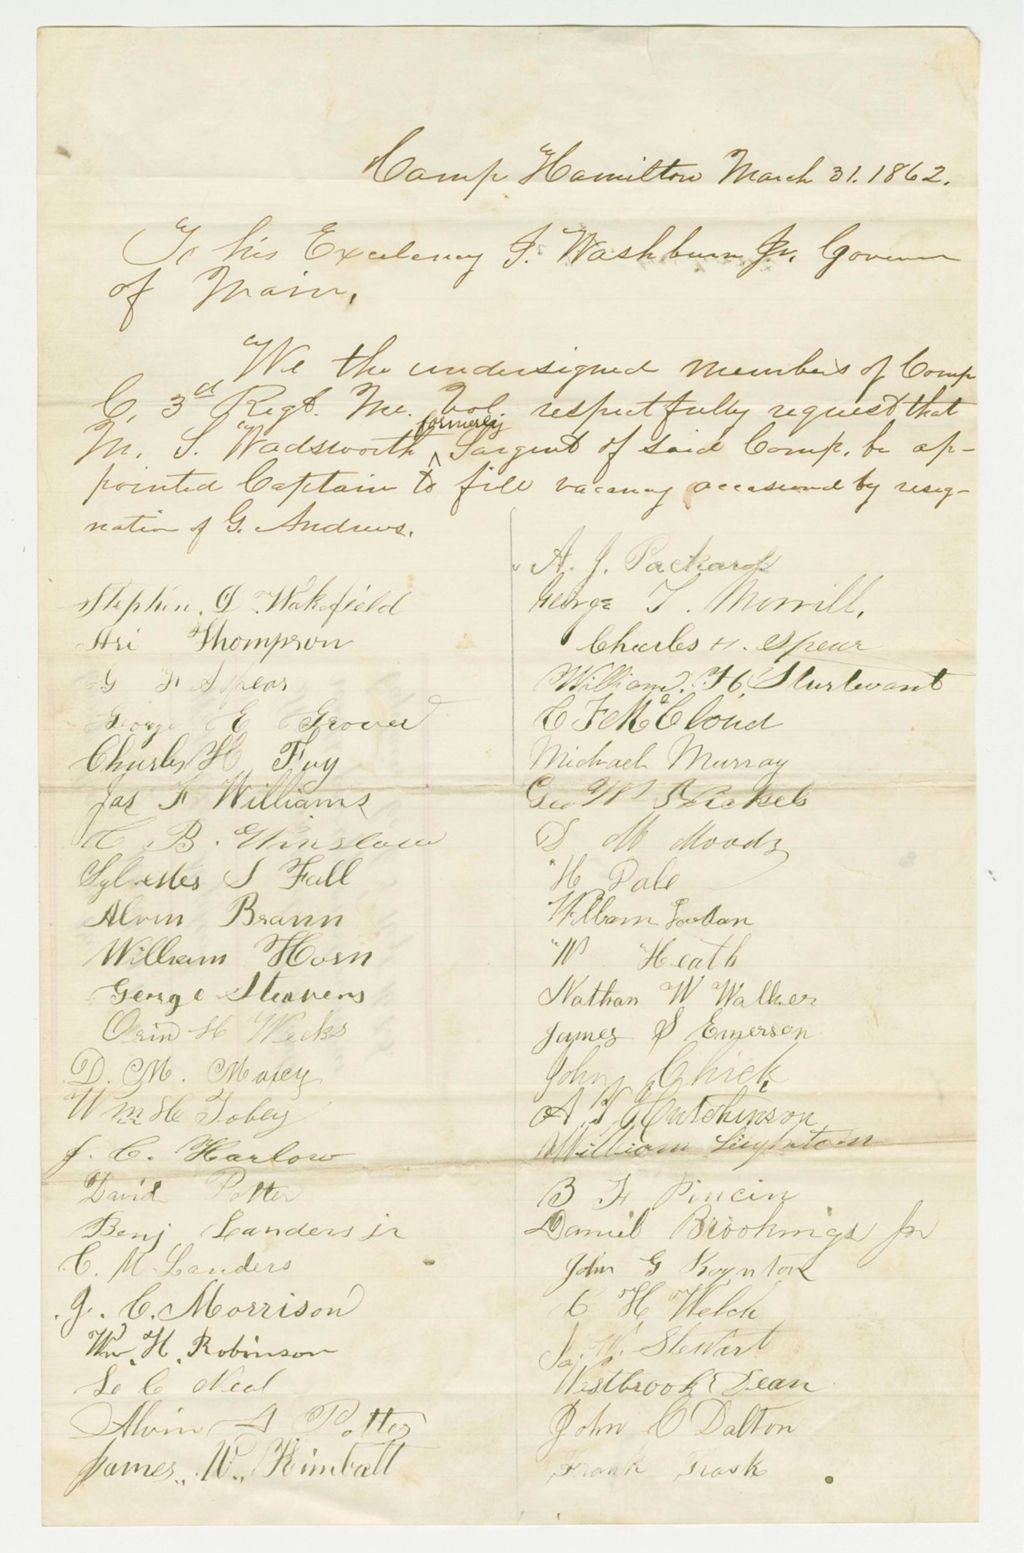 Camp Hamilton March 31. 1862.
To his Excelency I. Washburn Jr. Govenor
of Main,
We the undersigned members of Comp
C, 3d Regt. Me. Vol. respectfully request that
M. S. Wadsworth formerly Sargent of said Comp. be ap-
pointed Captain to fill vacancy occasioned by resig-
nation of G. Andrews.
Stephen. D Wakefield
Ari Thompson
G F Spear
George E Grover
Charles H Fuy
Jas F Williams
C B. Winslow
Sylvestes S Fall
Alvin Brann
William Horn
George Steavens
Orin H Weeks
D. M. Maxey
Wm H Tobey
J. C. Harlow
David Potter
Benj Landers jr
C. M Landers
J. C. Morrison
Wm. H. Robinson
C Neal
Alvin A Potter
James. W. Kimball
A. J. Packard
George T. Morrill,
Charles H. Spear
William. H. Sturtevant
C F McCloud
Michael Murray
Geo W
S M Moody
H Dale
William
W Heath
Nathan W Walker
James S Emerson
John Chick
A S Hutchinson
William
B F Pincin
Daniel Brookings Jr
John G Boynton
C H Welch
Stewart
Westbrook Dean
John C Dalton
Frank Trask